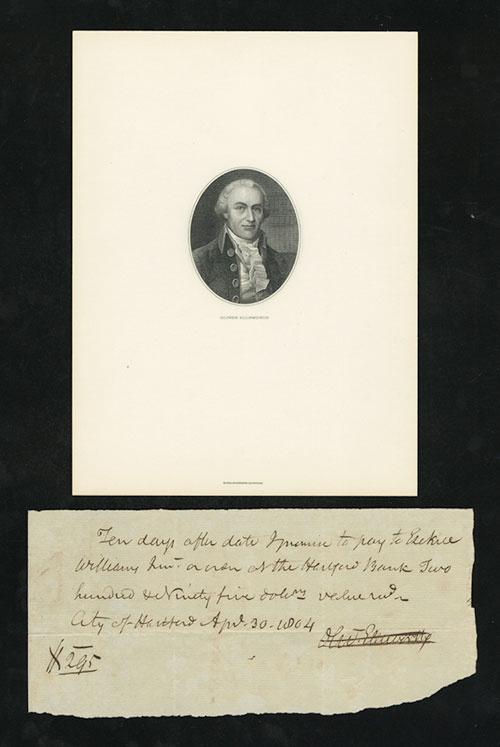 OLIVER ELLSWORTH
Ten days after date I promise to pay to Ezekiel
Williams Junr. or order at the Hartford Bank Two
hundred & Ninety five dollrs value recd.
City of Hartford Apl. 30. 1804
Olivr. Ellsworth
$295